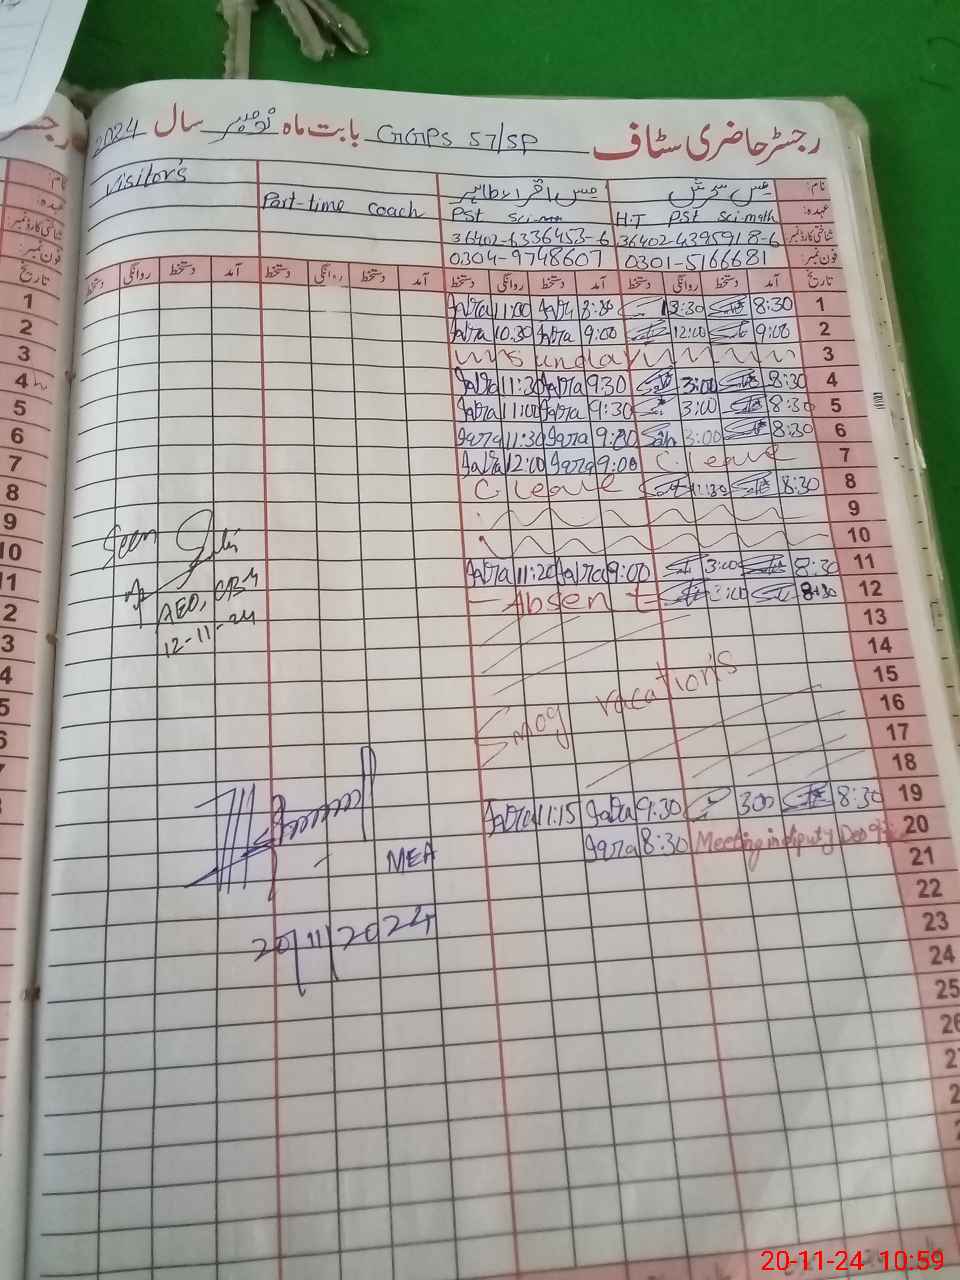 رجسٹر حاضری سٹاف GGPS 57/SP بابت ماہ نومبر سال 2024
نام: مس سحرش مس اقراء طاہر Visitor's
عہدہ: H.T PST Sci-math PST Sci-math Part-time coach
شناختی کارڈ نمبر: 36402-4395918-6 36402-6336453-6
فون نمبر: 0301-5166681 0304-9748607
تاریخ آمد دستخط روانگی دستخط آمد دستخط روانگی دستخط آمد دستخط روانگی دستخط آمد دستخط روانگی دستخط
1 8:30 Iqra 11:00 Iqra
2 9:00 12:00 9:00 Iqra 10:30 Iqra
3 Sunday
4 8:30 3:00 9:30 Iqra 11:30 Iqra
5 8:30 3:00 9:30 Iqra 11:00 Iqra
6 8:30 3:00 9:00 Iqra 11:30 Iqra
7 C. leave 9:00 Iqra 12:00 Iqra
8 8:30 C. leave
9
10
11 8:30 3:00 9:00 Iqra 11:20 Iqra
12 8:30 3:00 Absent
Seen
AEO,
12-11-24
13
14
15
16 Smog vacation's
17
18
19 8:30 300 9:30 Iqra 11:15 Iqra
20 Meeting in diputy Deo 8:30 Iqra
21
MEA
20/11/2024
22
23
24
25
26
20-11-24 10:59